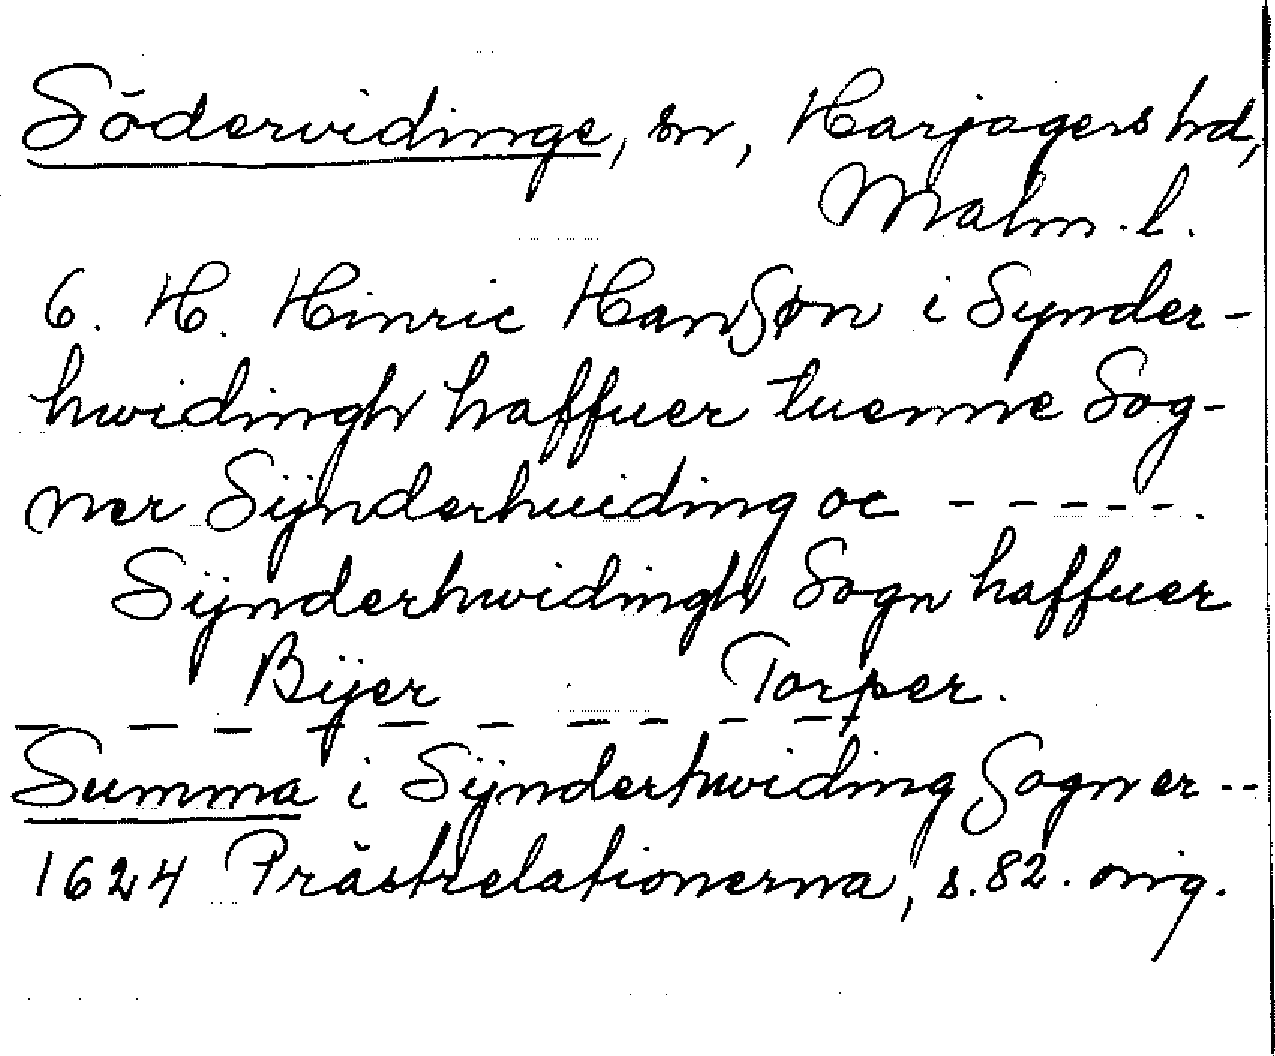 Södervidinge, sn, Harjagers hd,
Malm. l.
6. H. Hinric Hanſøn i Synder-
hwidingh haffuer tuenne Sog-
ner Sÿnderhuiding oc - - - - - .
Sÿnderhwidingh Sogn haffuer
Bÿer Torper.
— — — — — — — — — —
Summa i Sÿnderhwiding Sogn er --
1624 Prästrelationerna, s. 82. orig.